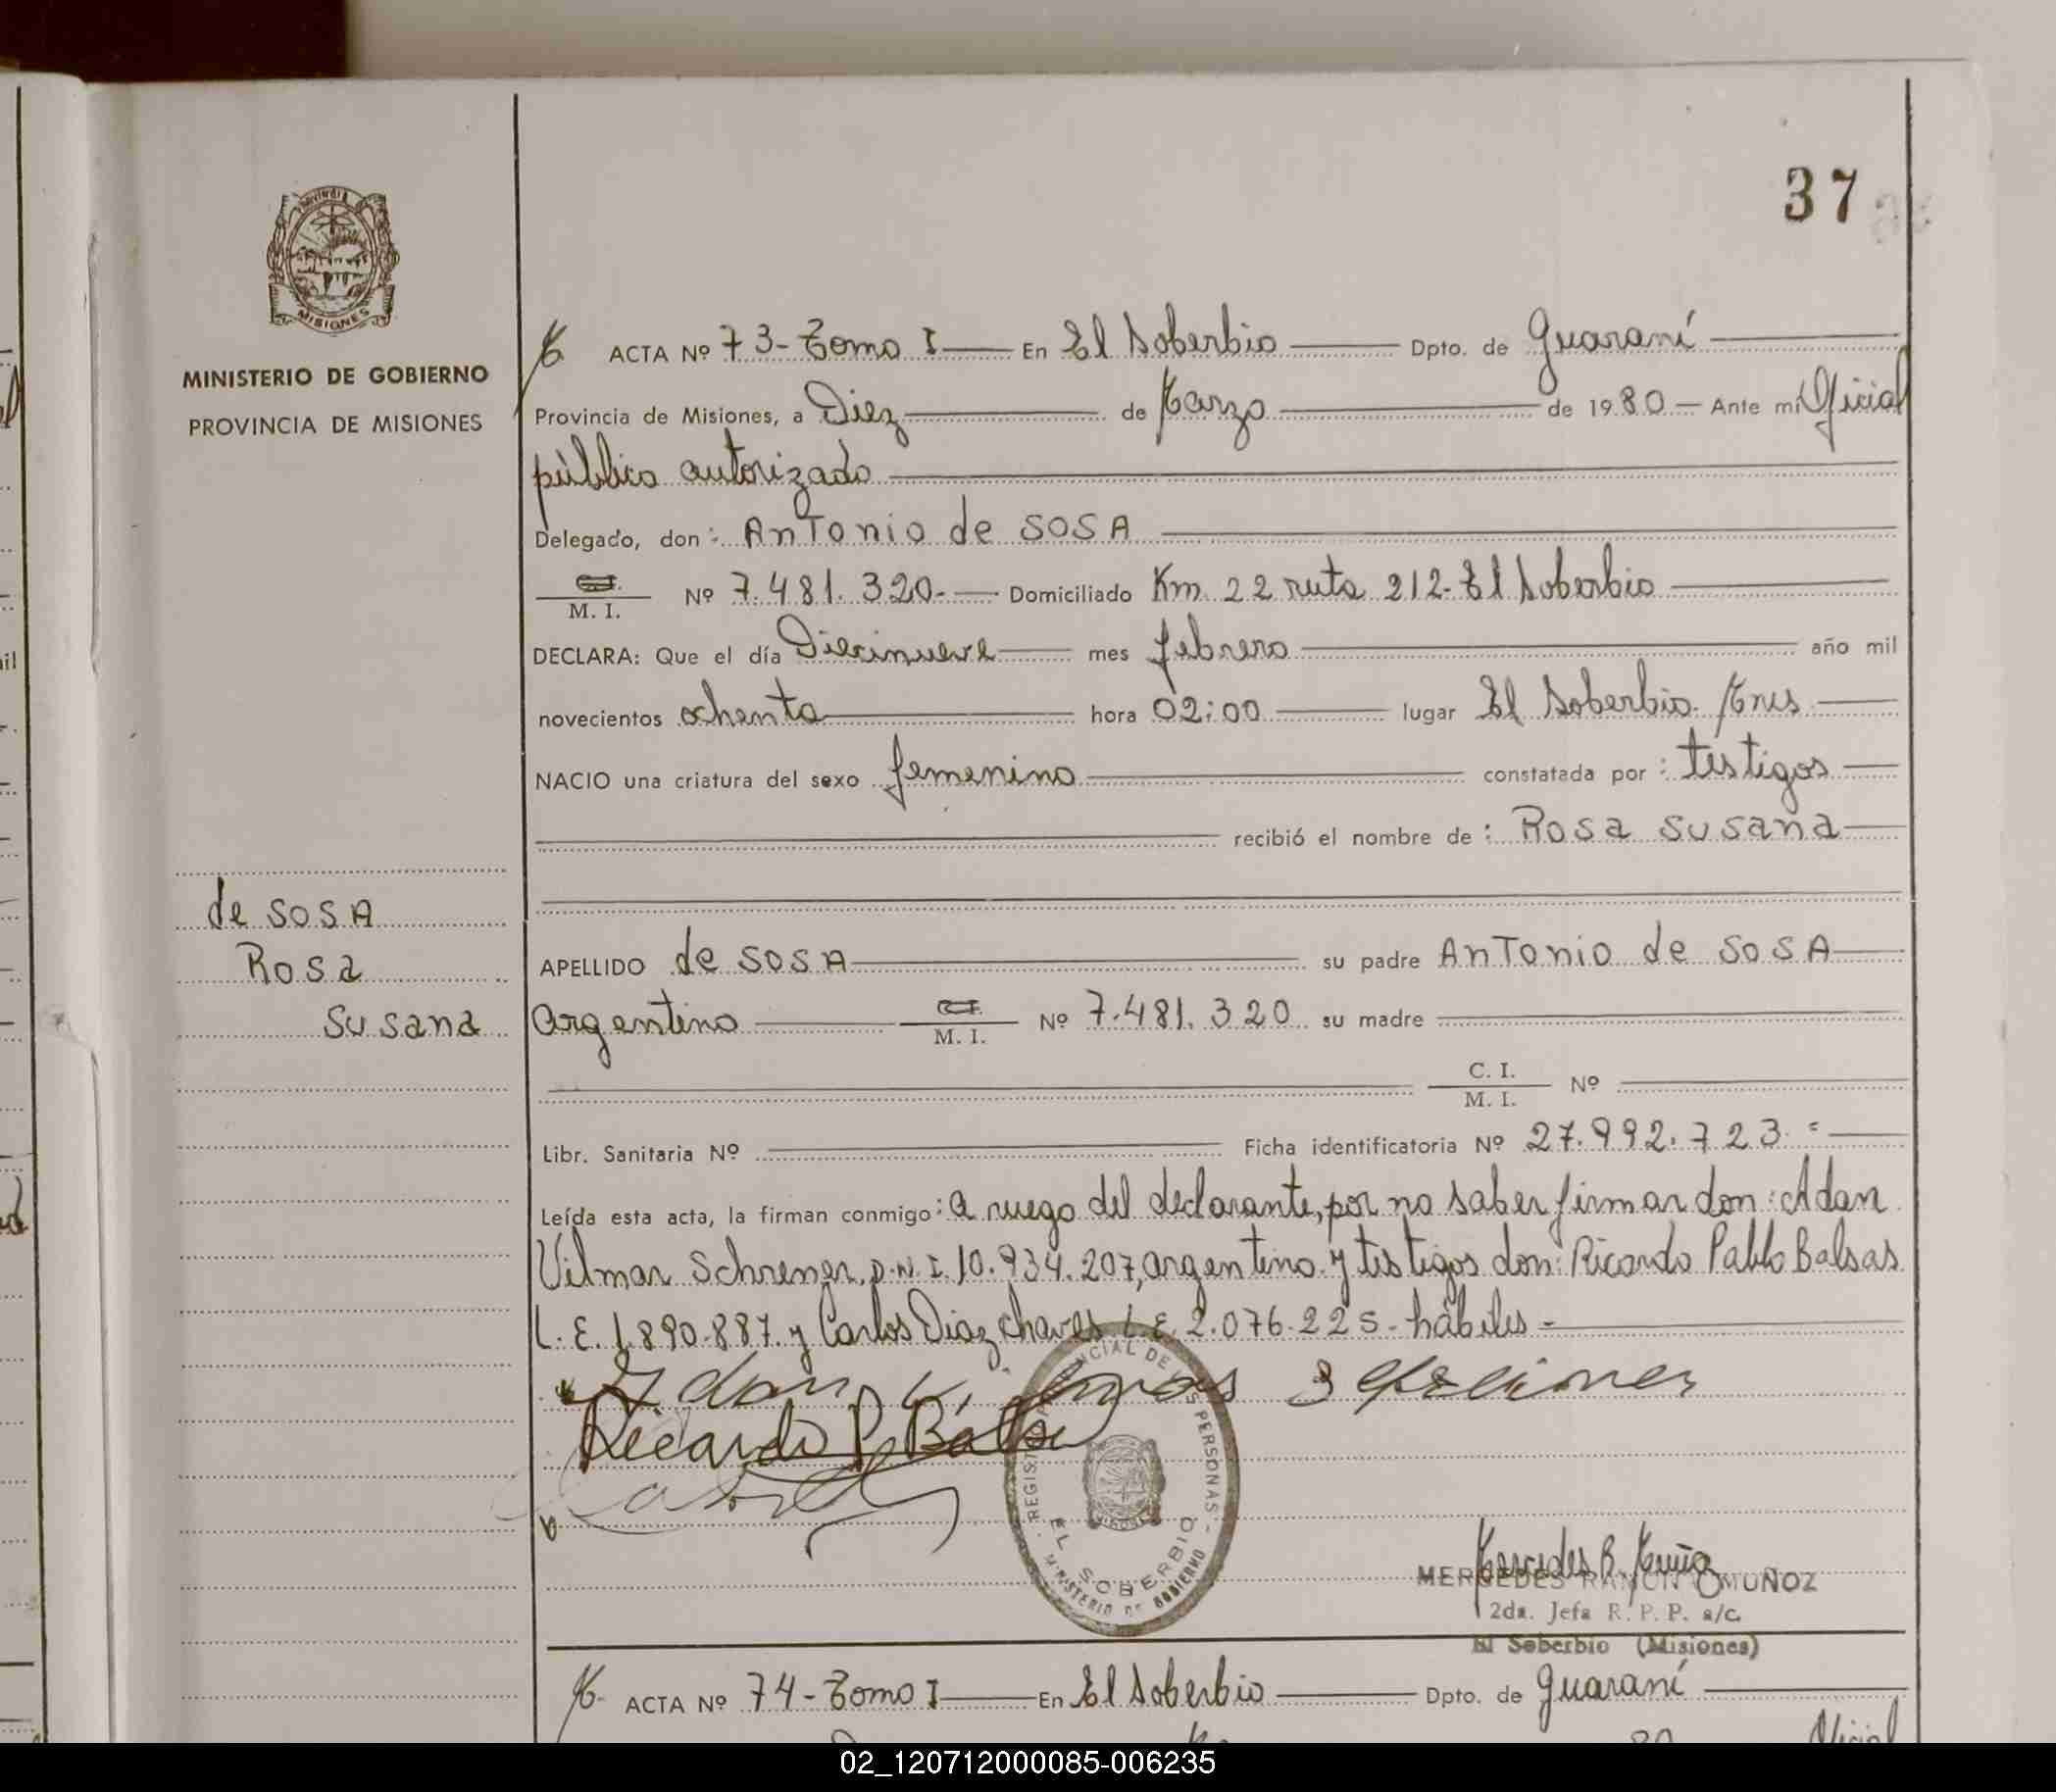 37
MISIONES
MINISTERIO DE GOBIERNO
PROVINCIA DE MISIONES
ACTA Nº 73-Tomo I En El Soberbio Dpto. de Guaraní
Provincia de Misiones, a Diez de Marzo de 1980 Ante mí Oficial
público autorizado
Delegado, don: Antonio de SOSA
M. I. Nº 7.481.320.- Domiciliado Km 22 ruta 212-El Soberbio
DECLARA: Que el día Diecinueve mes febrero año mil
novecientos ochenta hora 02:00 lugar El Soberbio. Mnes
NACIO una criatura del sexo femenino constatada por: testigos
recibió el nombre de: Rosa Susana
de SOSA
Rosa
Susana
APELLIDO de SOSA su padre Antonio de SOSA
argentino M. I. Nº 7.481.320 su madre
C. I.
M. I. Nº
Libr. Sanitaria Nº Ficha identificatoria Nº 27.992.723.=
Leída esta acta, la firman conmigo: a ruego del declarante, por no saber firmar don: Adan
Vilmar Schrener. D.N.I. 10.934.207, argentino y testigos don: Ricardo Pablo Balsas
L.E. 1.890.887. y Carlos Diaz chaves L.E. 2.076.225- hábiles-
Ricardo P. Balsa
REGISTRO PROVINCIAL DE LAS PERSONAS
EL SOBERBIO
MINISTERIO DE GOBIERNO
Mercedes R. Muñoz
MERCEDES RAMON MUÑOZ
2da. Jefa R. P. P. a/c.
El Soberbio (Misiones)
ACTA Nº 74-Tomo I En El Soberbio Dpto. de Guaraní
Oficial
02_120712000085-006235